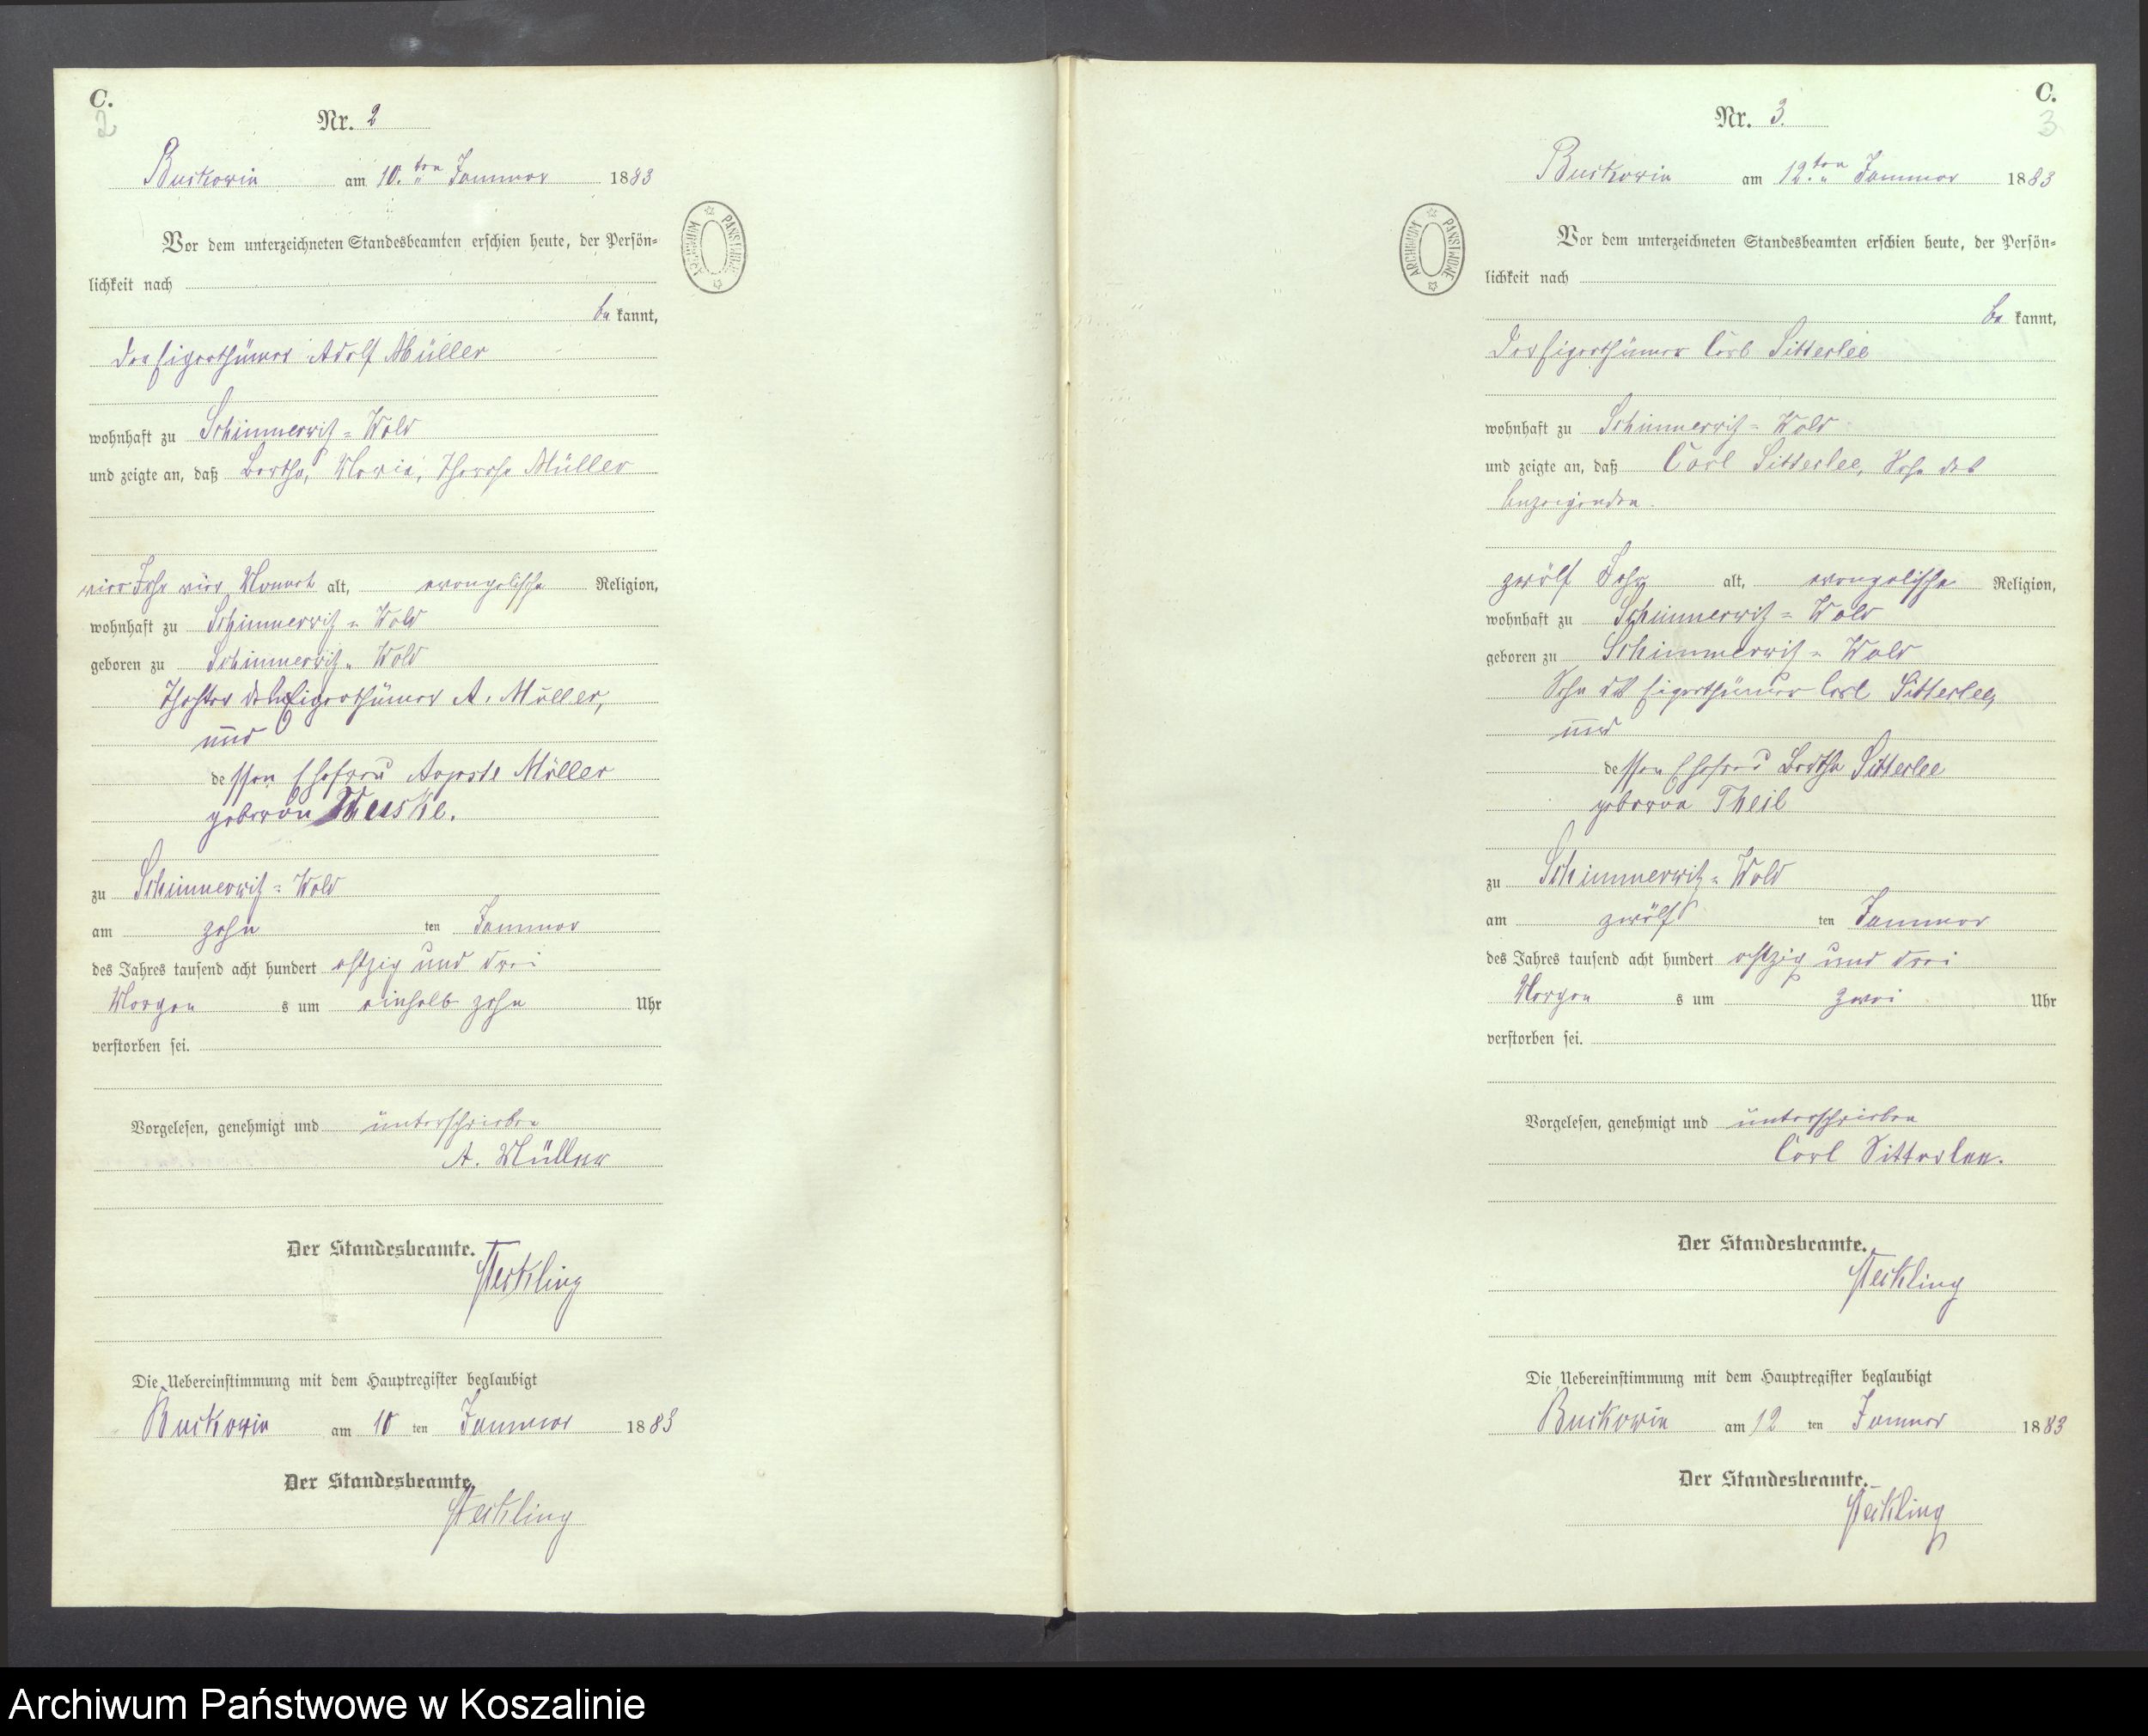 C.
2
Nr. 2
Buckowin am 10.ten Januar 1883
Vor dem unterzeichneten Standesbeamten erschien heute, der Persön-
lichkeit nach
be kannt,
der Eigenthümer Adolf Müller
wohnhaft zu Schimmerwitz = Wold
und zeigte an, daß Bertha, Maria, Therese Müller
vier Jahr vier Monat alt, evangelische Religion,
wohnhaft zu Schimmerwitz = Wold
geboren zu Schimmerwitz = Wold
Thochter des Eigenthümer A. Müller,
und
dessen Ehefrau Auguste Müller
geboren
zu Schimmerwitz = Wold
am zehn ten Januar
des Jahres tausend acht hundert achtzig und drei
Morgen s um einhalb zehn Uhr
verstorben sei.
Vorgelesen, genehmigt und unterschrieben
A. Müller
Der Standesbeamte.
Steckling
Die Uebereinstimmung mit dem Hauptregister beglaubigt
Buckowin am 10 ten Januar 1883
Der Standesbeamte.
Steckling
ARCHIWUM PAŃSTWOWE
C.
3
Nr. 3.
Buckowin am 12.ten Januar 1883
Vor dem unterzeichneten Standesbeamten erschien heute, der Persön-
lichkeit nach
be kannt,
der Eigenthümer Carl Sitterlee
wohnhaft zu Schimmerwitz = Wold
und zeigte an, daß Carl Sitterlee, Sohn des
Anzeigenden.
zwölf Jahr alt, evangelische Religion,
wohnhaft zu Schimmerwitz = Wold
geboren zu Schimmerwitz = Wold
Sohn des Eigenthümer Carl Sitterlee,
und
dessen Ehefrau Bertha Sitterlee
geboren Theil
zu Schimmerwitz = Wold
am zwölf ten Januar
des Jahres tausend acht hundert achtzig und drei
Morgen s um zwei Uhr
verstorben sei.
Vorgelesen, genehmigt und unterschrieben
Carl Sitterlee.
Der Standesbeamte.
Steckling
Die Uebereinstimmung mit dem Hauptregister beglaubigt
Buckowin am 12 ten Januar 1883
Der Standesbeamte.
Steckling
ARCHIWUM PAŃSTWOWE
Archiwum Państwowe w Koszalinie